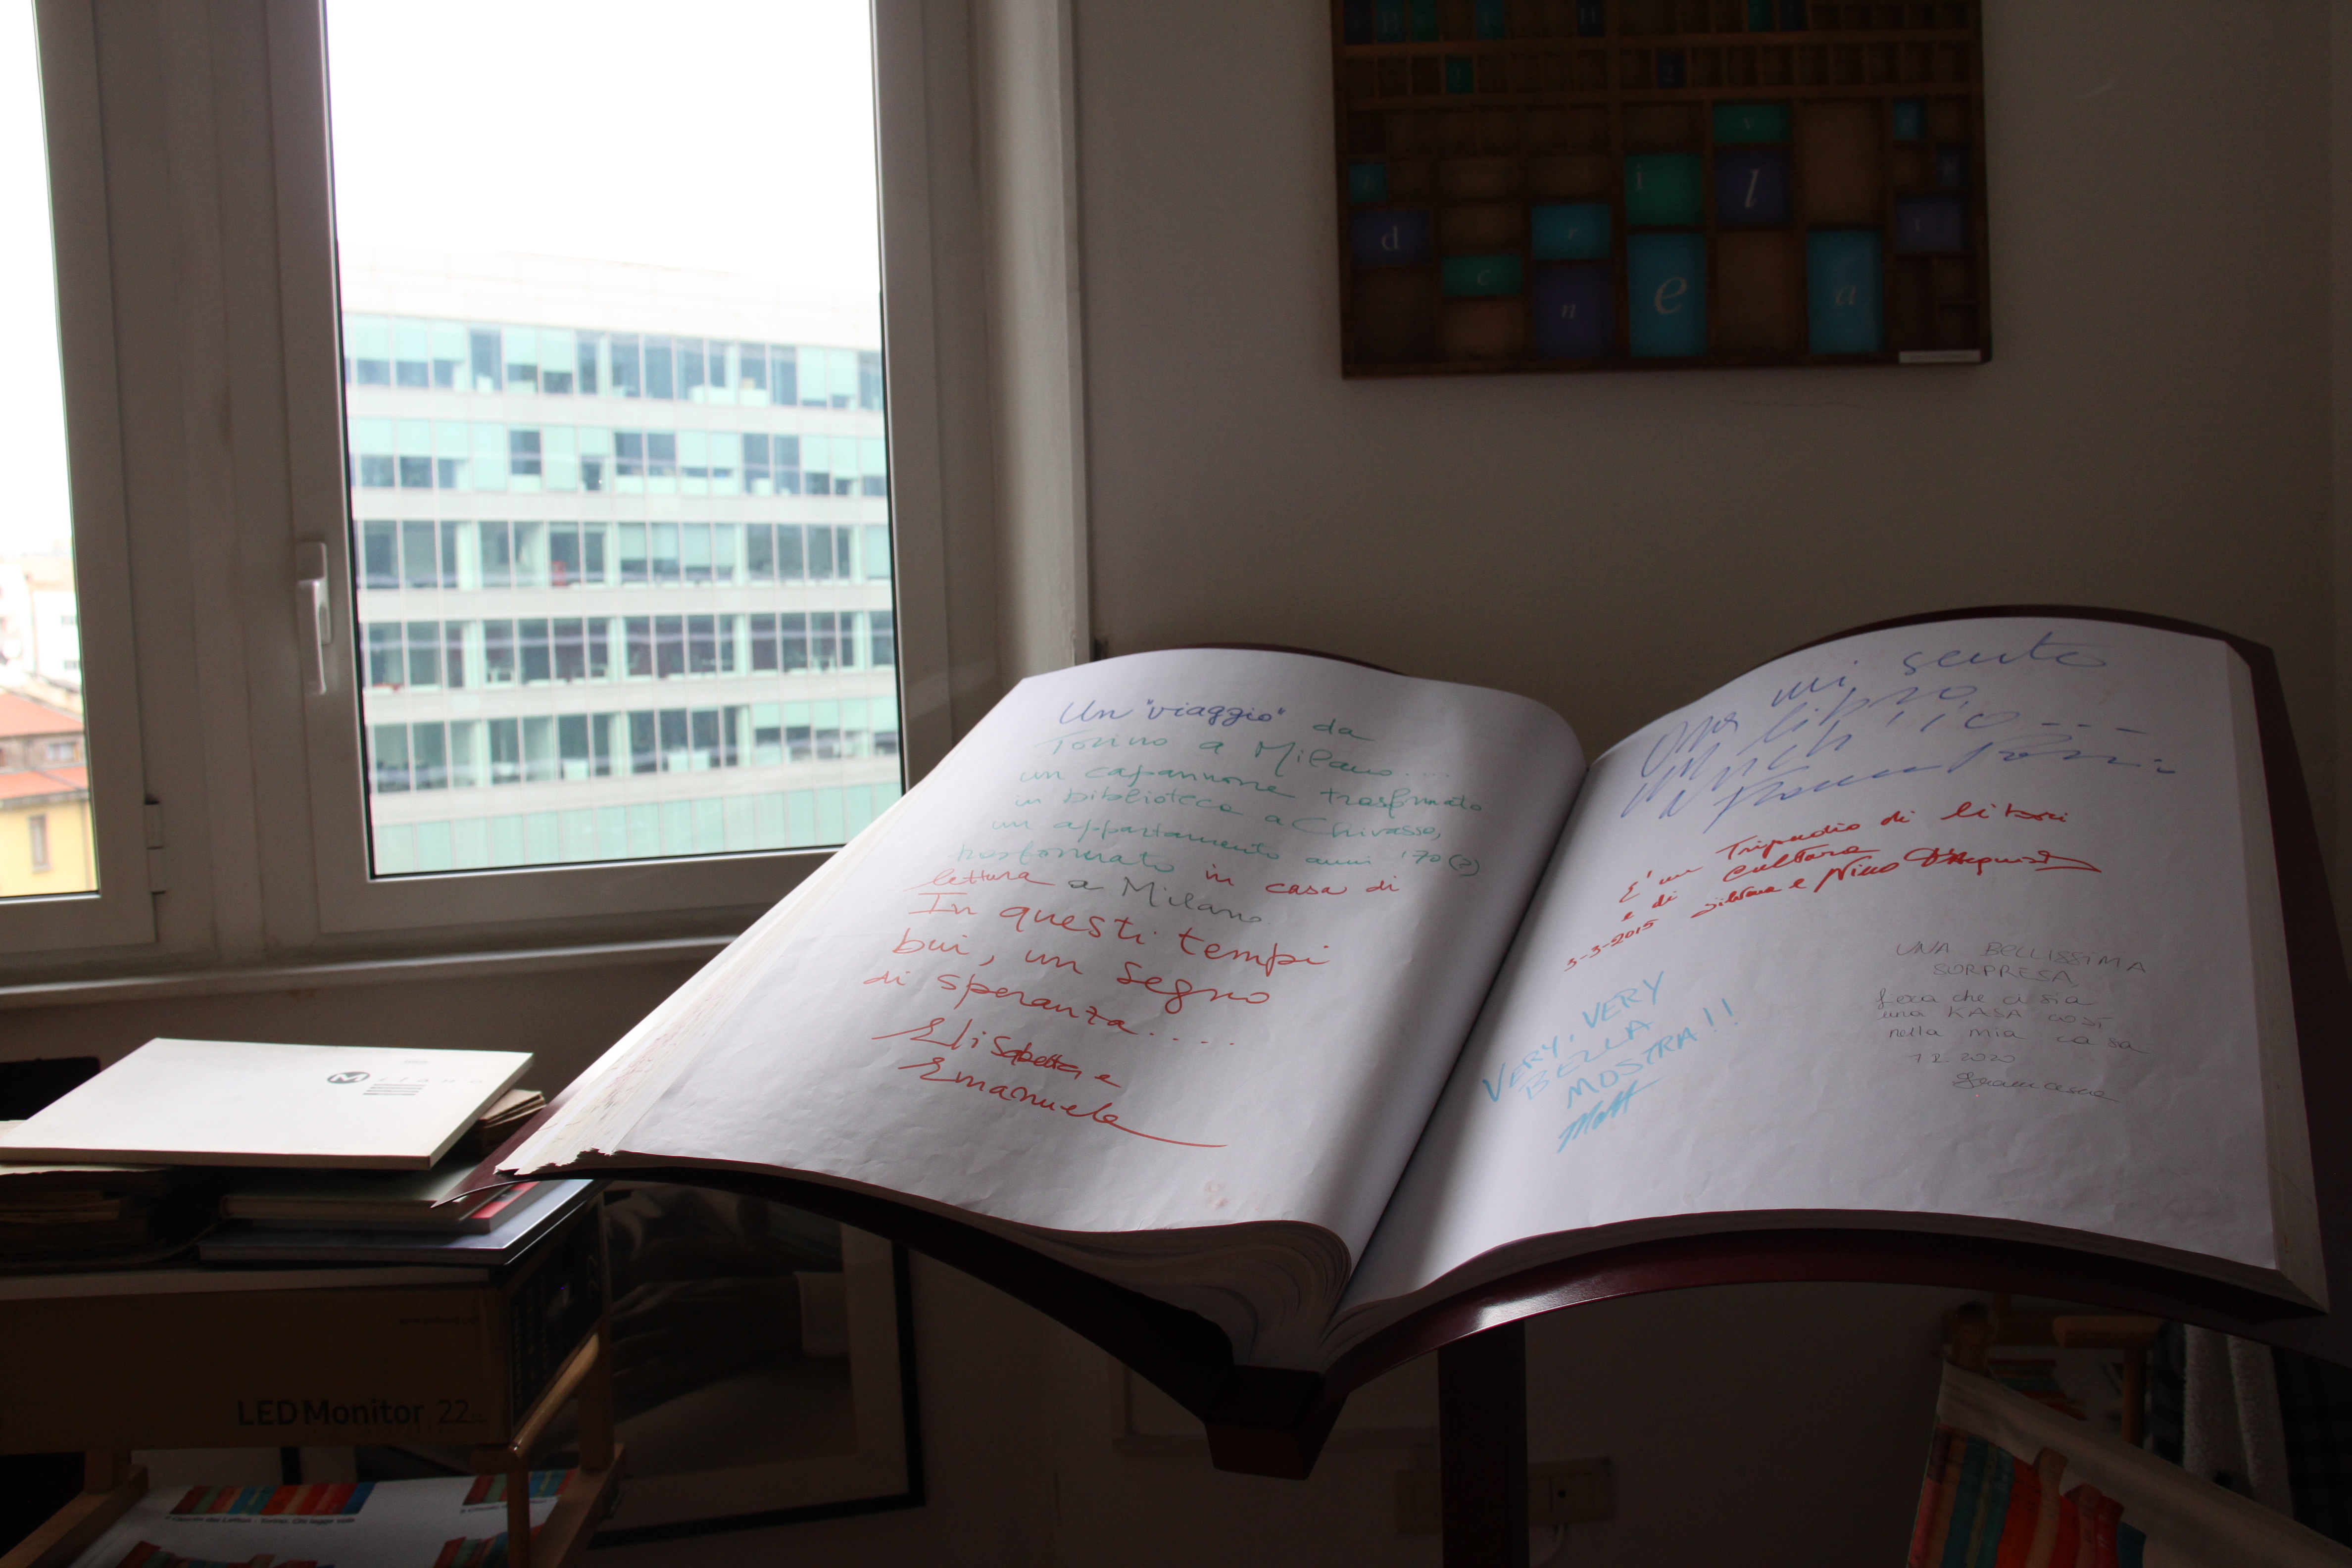 Un "viaggio" da
Torino a Milano....
un capannone trasformato
in biblioteca a Chivasso,
un appartamento anni '70 (?)
trasformato in casa di
lettura a Milano.
In questi tempi
bui, un segno
di speranza....
Elisabetta e
Emanuele
mi sento
Ora
libro,
anch'io....
E' un Tripudio di libri
e di cultura
3-3-2015 Silvana e Nino
VERY, VERY
BELLA
MOSTRA!!
Matt
UNA BELLISSIMA
SORPRESA,
che ci sia
una KASA così
nella mia casa
1.2.2020
Milano
LED Monitor 22
i
v
l
d
r
c
n
e
a